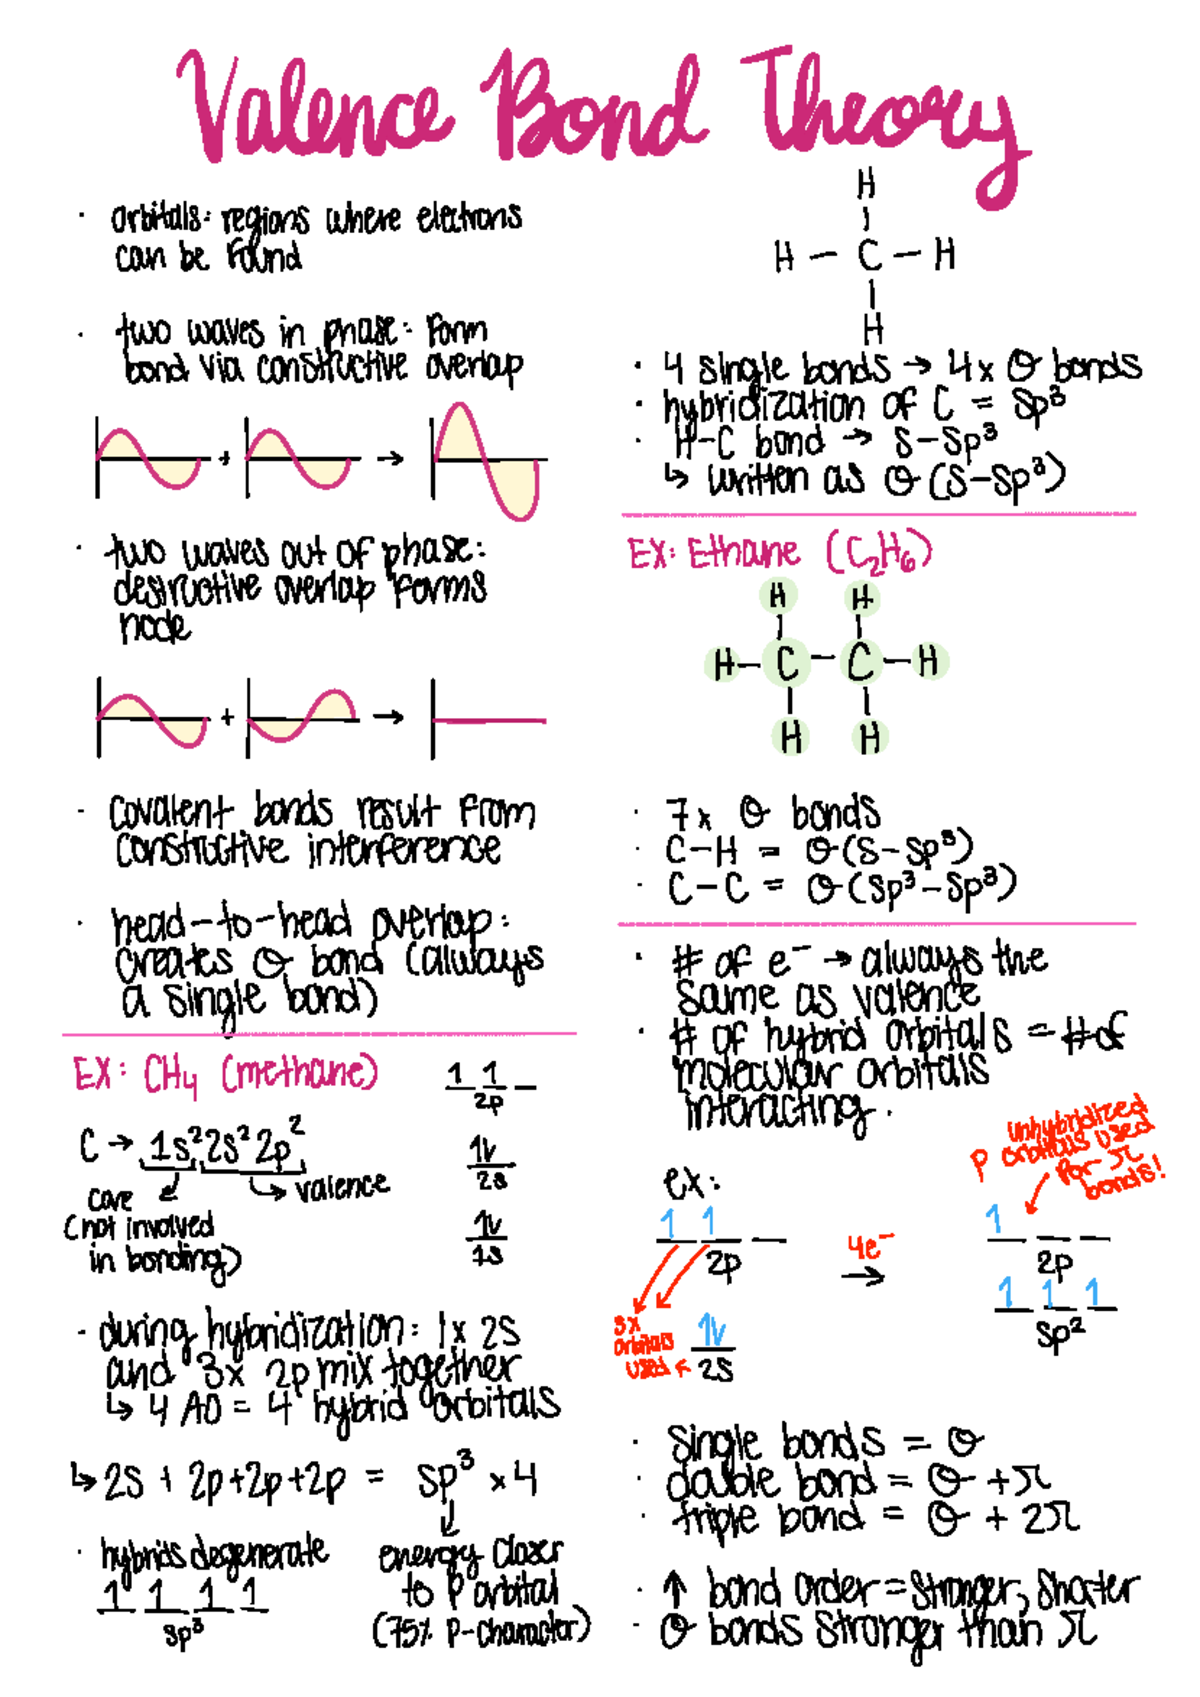 Valence Bond Theory
· orbitals: regions where electrons
can be found
· two waves in phase: form
bond via constructive overlap
+ →
· two waves out of phase:
destructive overlap forms
node
+ →
- covalent bonds result from
constructive interference
· head-to-head overlap:
creates σ bond (always
a single bond)
EX: CH₄ (methane)
1 1 _
2p
C → 1s² 2s² 2p²
1v
2s
core
valence
(not involved
in bonding)
1v
1s
- during hybridization: 1x 2s
and 3x 2p mix together
↳ 4 AO = 4 hybrid orbitals
↳ 2s + 2p+2p+2p = sp³ x 4
· hybrids degenerate
1 1 1 1
sp³
energy closer
to P orbital
(75% P-character)
H
H – C – H
H
· 4 single bonds → 4x σ bonds
· hybridization of C = sp³
· H-C bond → s-sp³
↳ written as σ (s-sp³)
EX: Ethane (C₂H₆)
H H
H – C – C – H
H H
· 7x σ bonds
· C-H = σ (s-sp³)
· C-C = σ (sp³-sp³)
· # of e⁻ → always the
same as valence
· # of hybrid orbitals = # of
molecular orbitals
interacting.
unhybridized
P orbitals used
for π
bonds!
ex:
1 1 _
2p
4e⁻
→
1 _ _
2p
3x
orbitals
used
1v
2s
1 1 1
sp²
· single bonds = σ
· double bond = σ + π
· triple bond = σ + 2π
· ↑ bond order = stronger, shorter
· σ bonds stronger than π